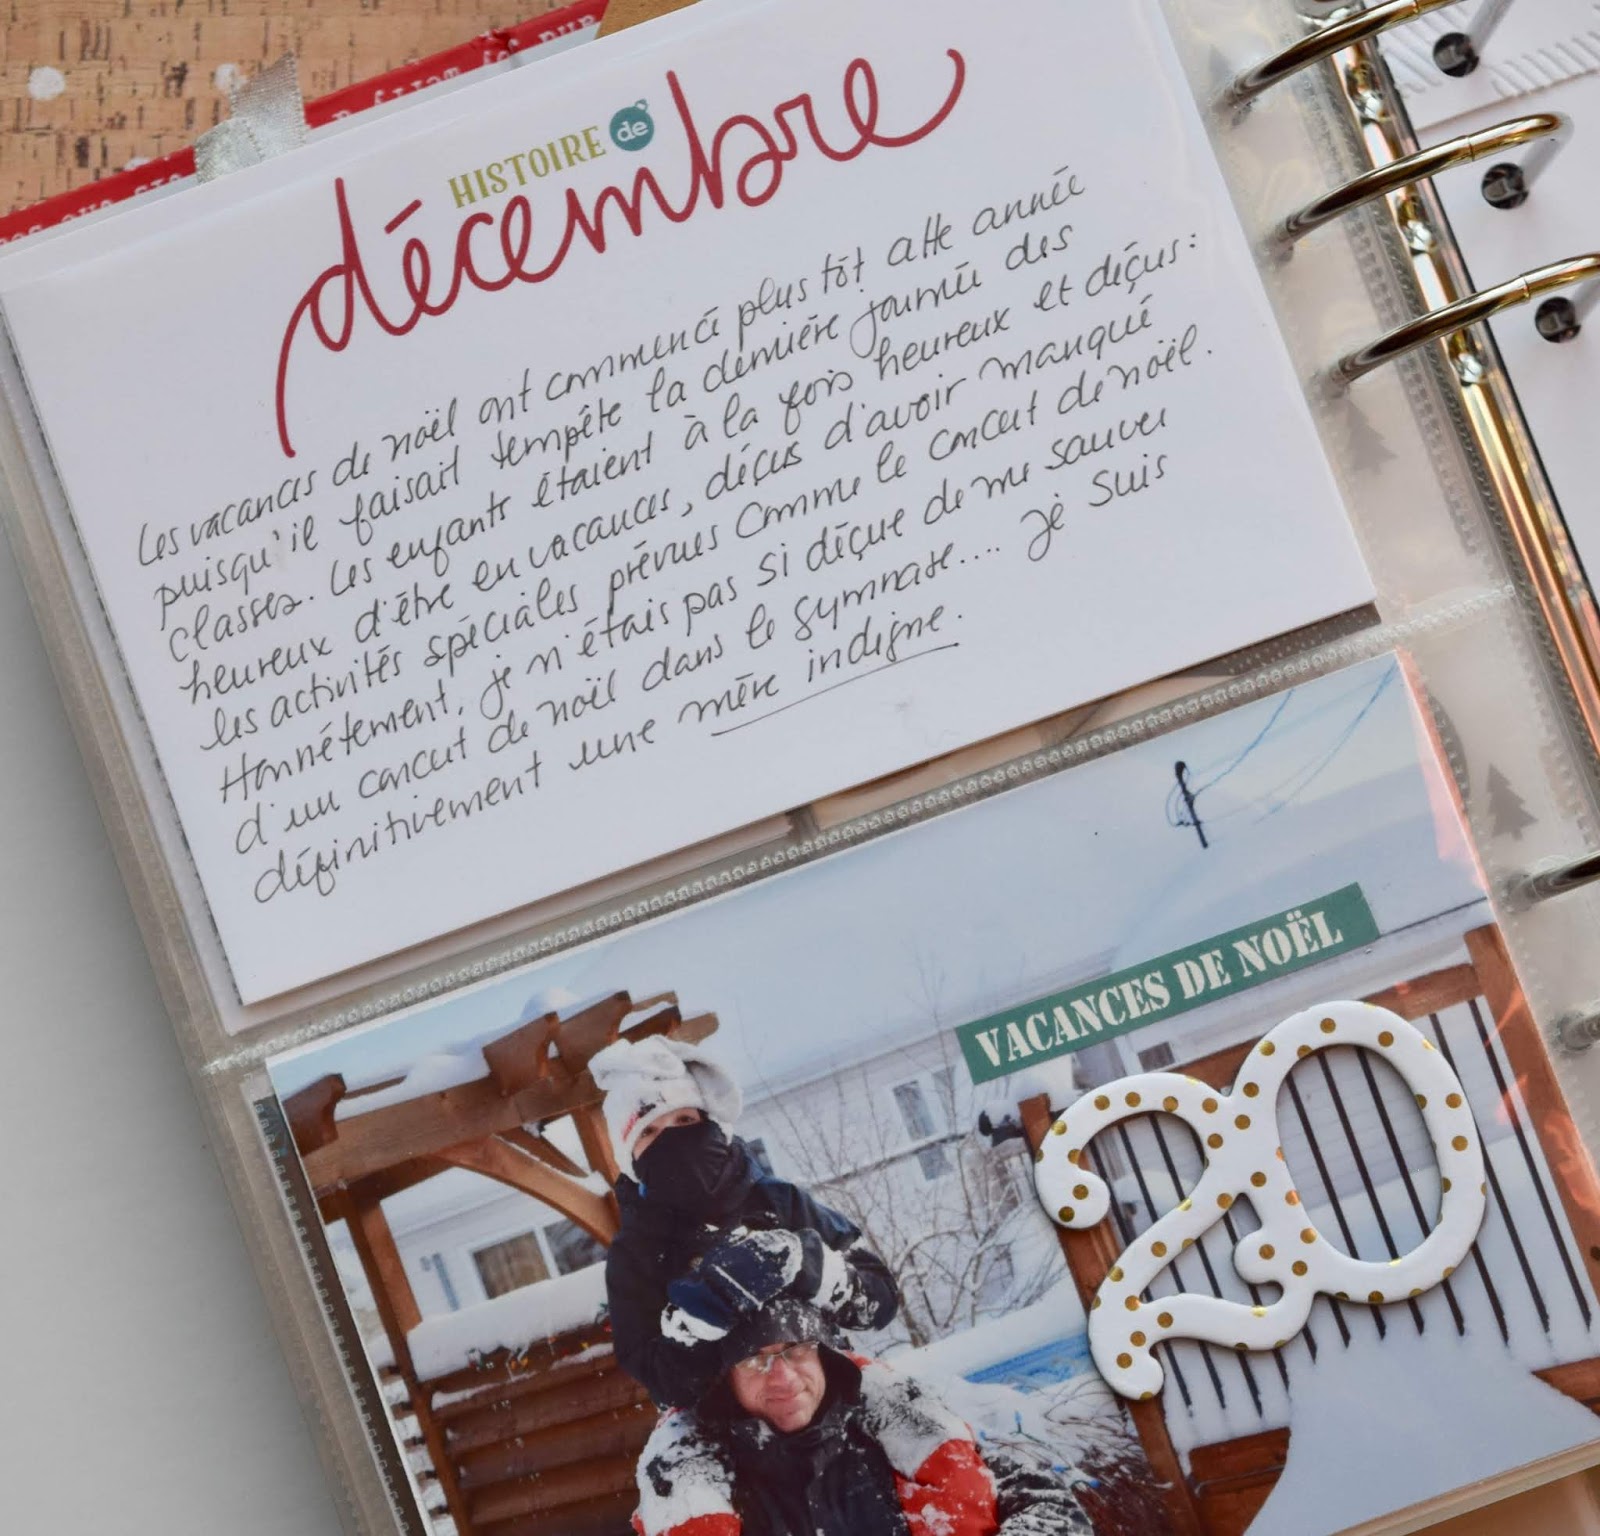 HISTOIRE de
décembre
Les vacances de noël ont commencé plus tôt cette année
puisqu'il faisait tempête la dernière journée des
classes. Les enfants étaient à la fois heureux et déçus :
heureux d'être en vacances, déçus d'avoir manqué
les activités spéciales prévues comme le concert de noël.
Honnêtement, je n'étais pas si déçue de me sauver
d'un concert de noël dans le gymnase.... Je suis
définitivement une mère indigne.
VACANCES DE NOËL
20